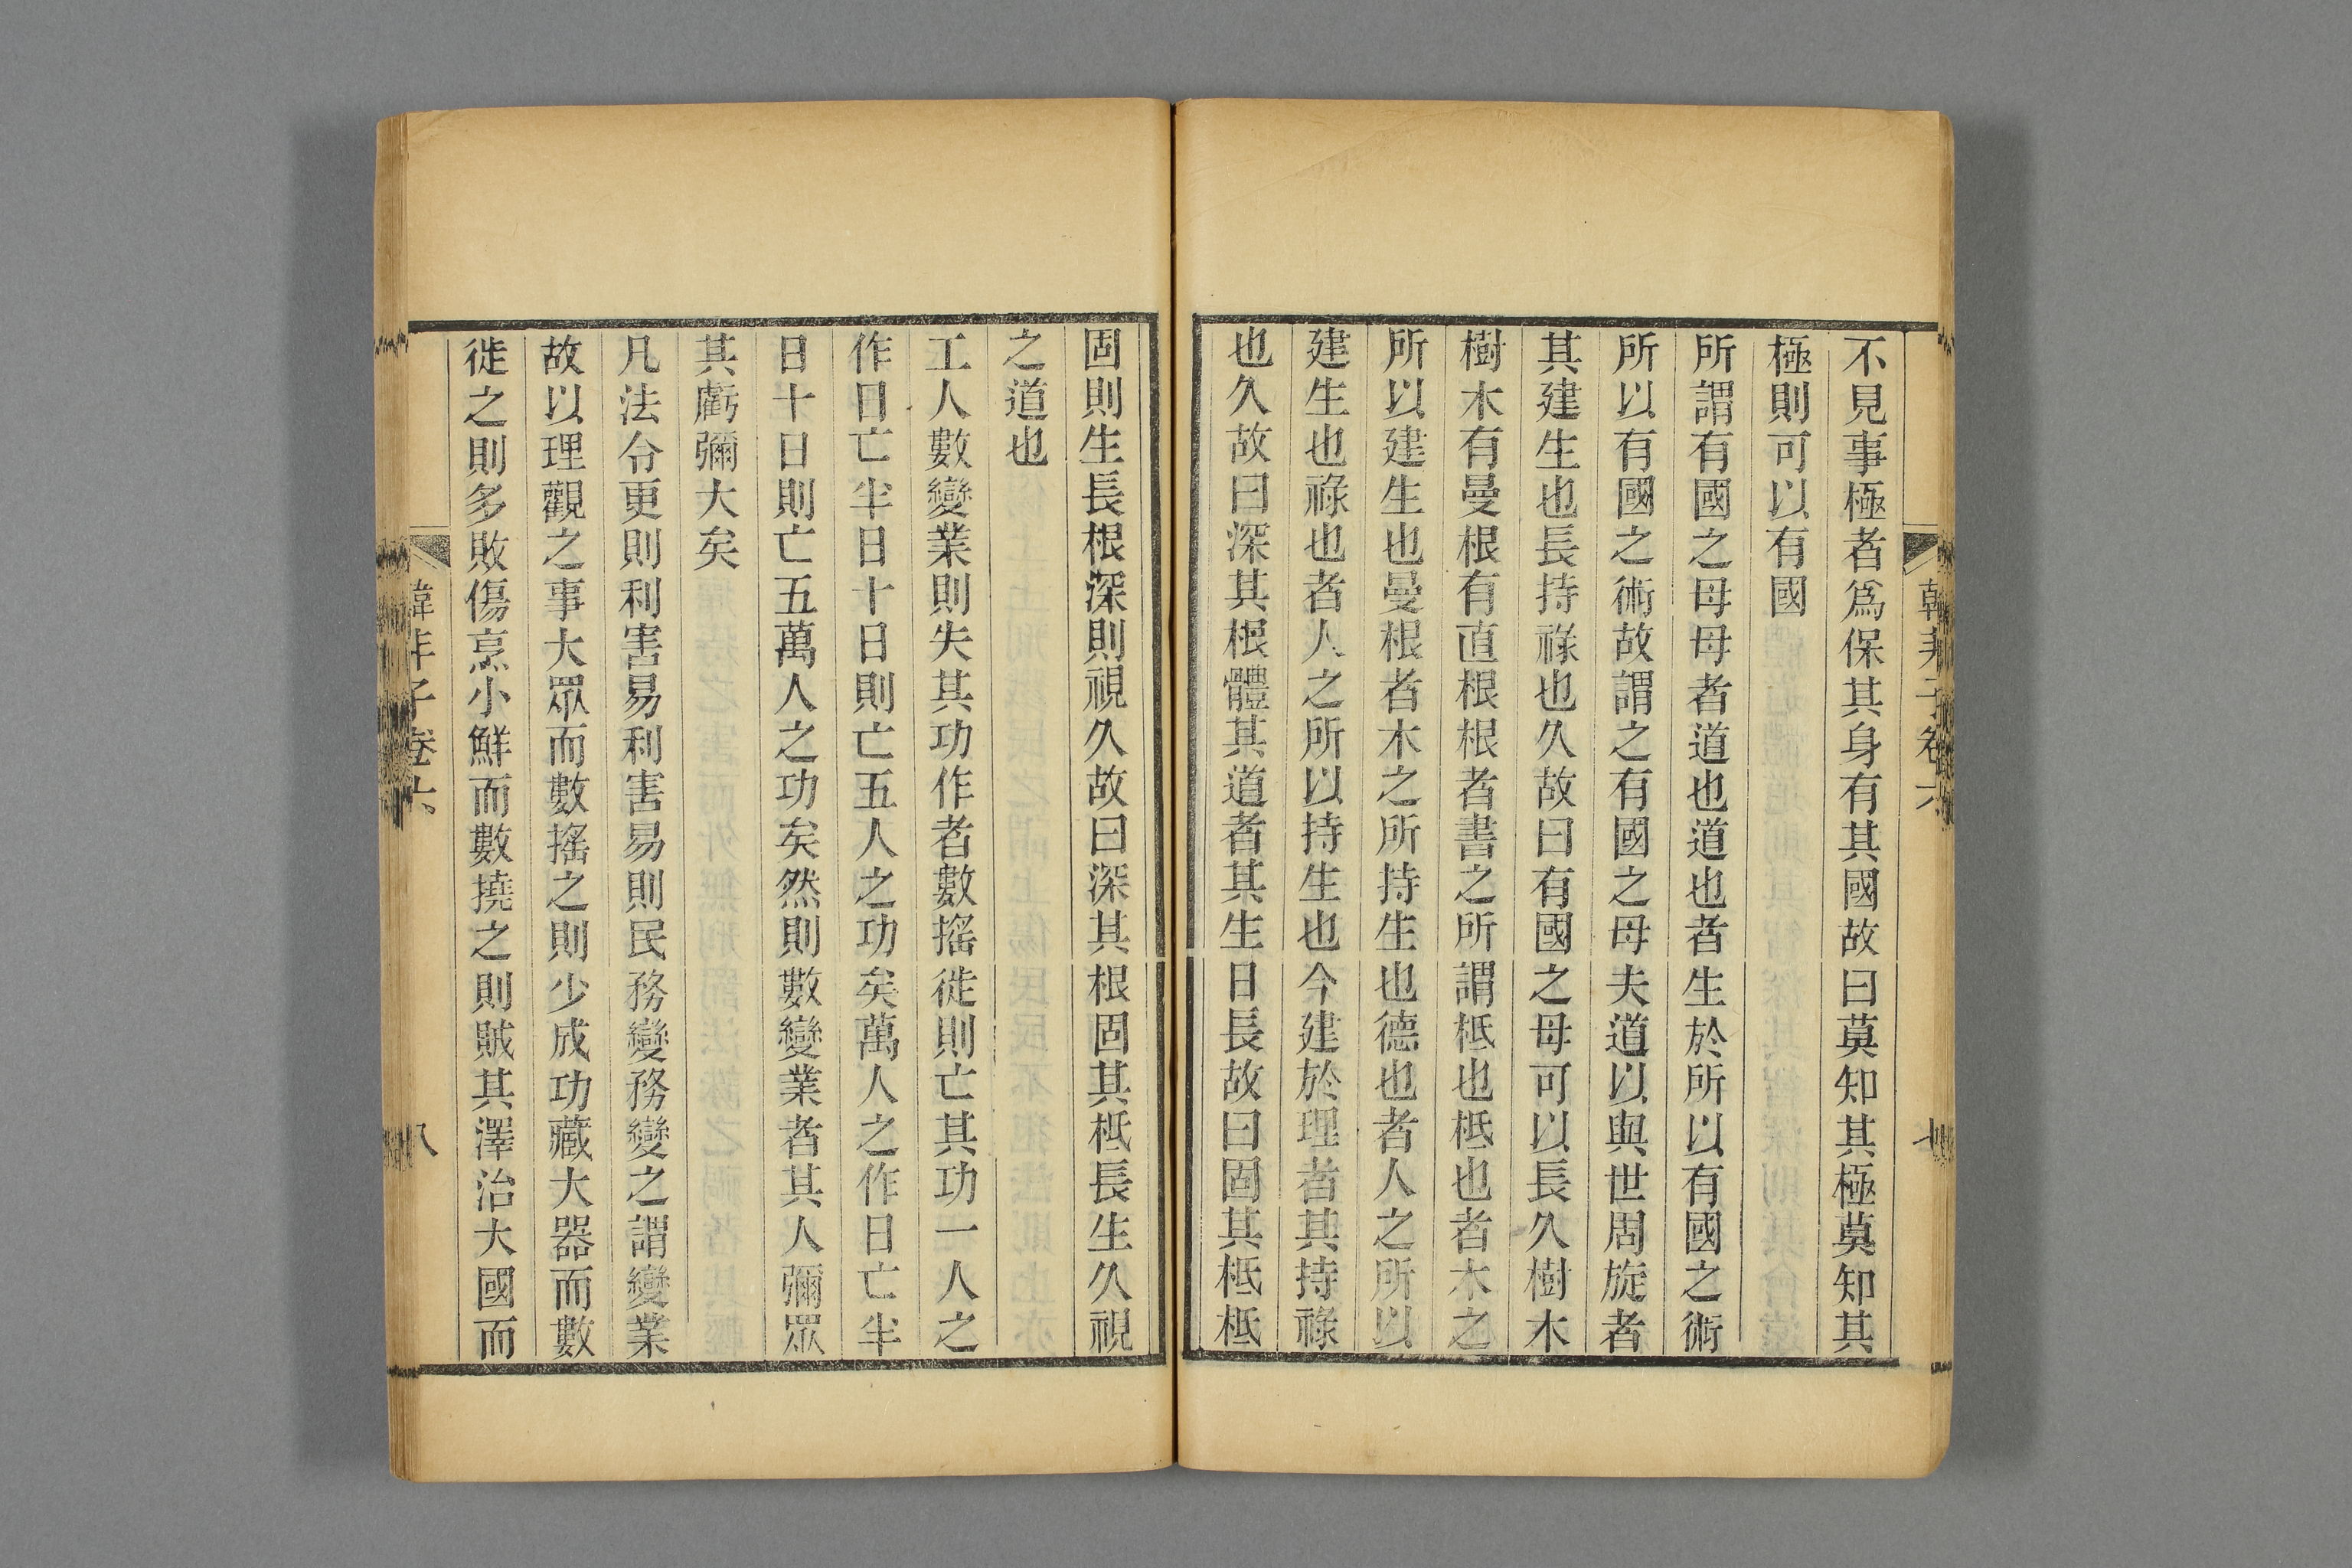 韓非子卷六
七
不見事極者爲保其身有其國故曰莫知其極莫知其
極則可以有國
所謂有國之母母者道也道也者生於所以有國之術
所以有國之術故謂之有國之母夫道以與世周旋者
其建生也長持祿也久故曰有國之母可以長久樹木
樹木有曼根有直根根者書之所謂柢也柢也者木之
所以建生也曼根者木之所持生也德也者人之所以
建生也祿也者人之所以持生也今建於理者其持祿
也久故曰深其根體其道者其生日長故曰固其柢柢
固則生長根深則視久故曰深其根固其柢長生久視
之道也
工人數變業則失其功作者數搖徙則亡其功一人之
作日亡半日十日則亡五人之功矣萬人之作日亡半
日十日則亡五萬人之功矣然則數變業者其人彌眾
其虧彌大矣
凡法令更則利害易利害易則民務變務變之謂變業
故以理觀之事大眾而數搖之則少成功藏大器而數
徙之則多敗傷烹小鮮而數撓之則賊其澤治大國而
韓非子卷六
八